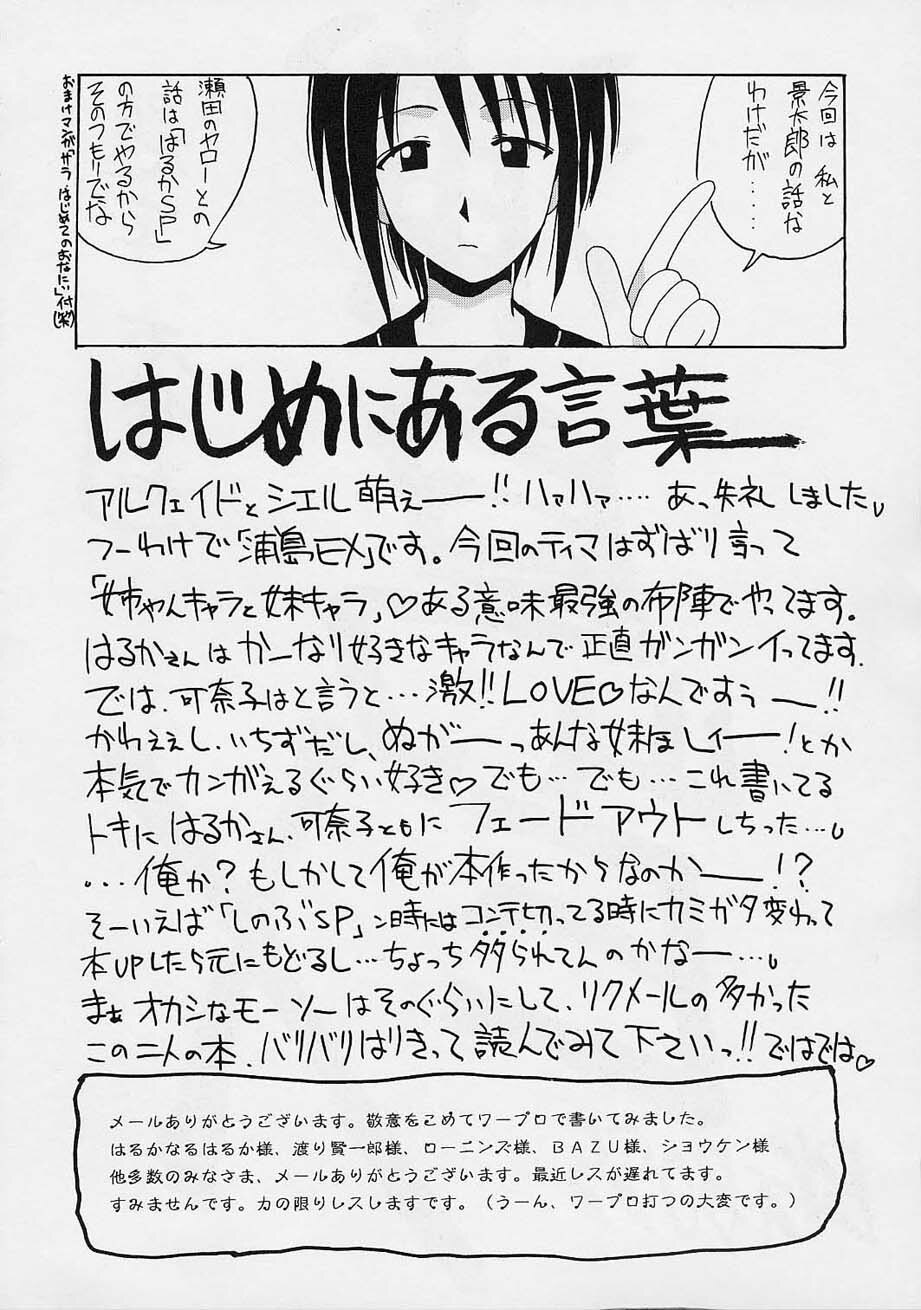 今回は 私と
景太郎の話な
わけだが・・・・
瀬田のヤローとの
話は「はるかSP」
の方でやるから
そのつもりでな
はじめにある言葉
アルクェイドとシエル萌えー!! ハァハァ…… あっ失礼しました
つーわけで「浦島EX」です。今回のティマはずばり言って
「姉ちゃんキャラと妹キャラ」♡ある意味最強の布陣でやってます。
はるかさんはかーなり好きなキャラなんで正直ガンガンイってます.
では、可奈子はと言うと…激!!LOVE♡なんですぅー!!
かわええし、いちずだし、ぬがーっあんな妹ほしィー!とか
本気でカンがえるぐらい好き♡でも…でも…これ書いてる
トキにはるかさん、可奈子ともにフェードアウトしちった…
…俺か?もしかして俺が本作ったからなのかー!?
そーいえば「しのぶSP」ン時にはコンテ切ってる時にカミガタ変わって
本UPしたら元にもどるし…ちょっち祟られてんのかなー…
まぁオカシなモーソーはそのぐらいにして、リクメールの多かった
この二人の本、バリバリはりきって読んでみて下さいっ!!ではでは♡
メールありがとうございます。敬意をこめてワープロで書いてみました。
はるかなるはるか様、渡り賢一郎様、ローニンズ様、BAZU様、ショウケン様
他多数のみなさま、メールありがとうございます。最近レスが遅れてます。
すみませんです。力の限りレスしますです。（うーん、ワープロ打つの大変です。）